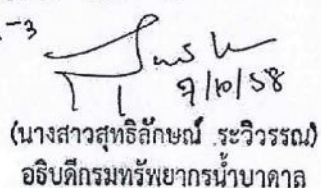 -3
9/10/58
(นางสาวสุทธิลักษณ์ ระวิวรรณ)
อธิบดีกรมทรัพยากรน้ำบาดาล